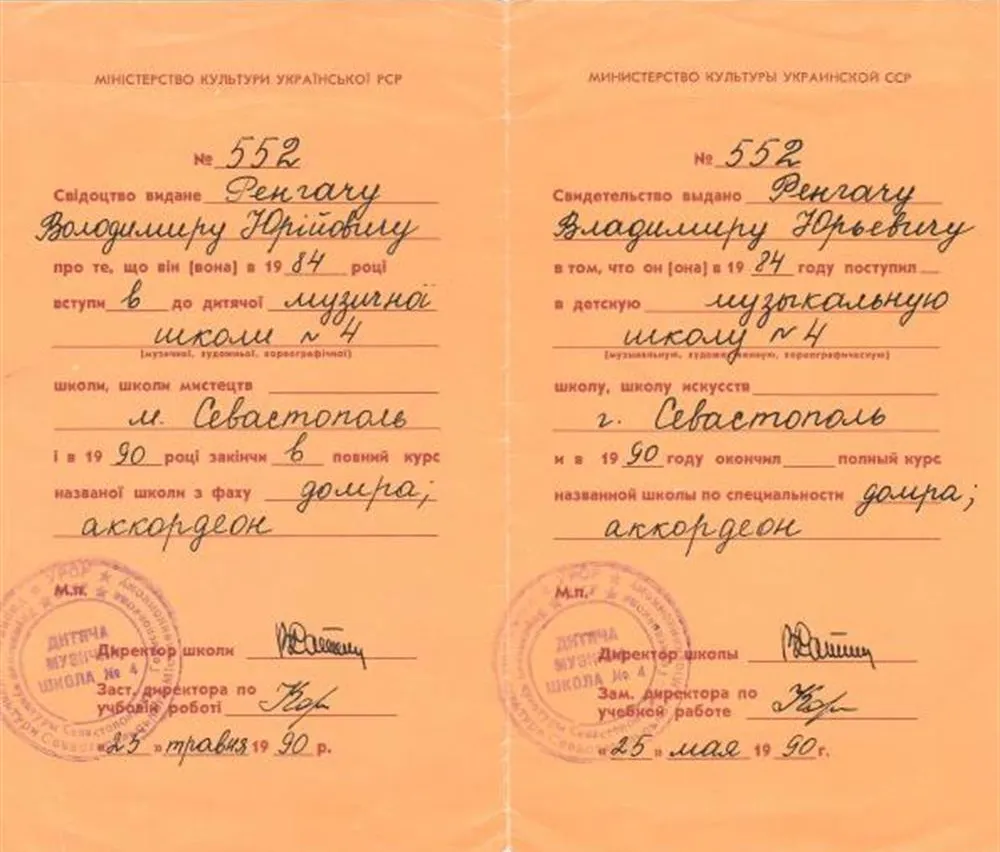 МІНІСТЕРСТВО КУЛЬТУРИ УКРАЇНСЬКОЇ РСР
№ 552
Свідоцтво видане Ренгачу
Володимиру Юрійовичу
про те, що він (вона) в 19 84 році
вступи в до дитячої музичної
школи № 4
(музичної, художньої, хореографічної)
школи, школи мистецтв
м. Севастополь
і в 19 90 році закінчи в повний курс
названої школи з фаху домра;
аккордеон
М.п.
ДИТЯЧА
МУЗИЧНА
ШКОЛА № 4
Директор школи
Заст. директора по
учбовій роботі
«25» травня 19 90 р.
МИНИСТЕРСТВО КУЛЬТУРЫ УКРАИНСКОЙ ССР
№ 552
Свидетельство выдано Ренгачу
Владимиру Юрьевичу
в том, что он (она) в 19 84 году поступил
в детскую музыкальную
школу № 4
(музыкальную, художественную, хореографическую)
школу, школу искусств
г. Севастополь
и в 19 90 году окончил полный курс
названной школы по специальности домра;
аккордеон
М.п.
ДИТЯЧА
МУЗИЧНА
ШКОЛА № 4
Директор школы
Зам. директора по
учебной работе
«25» мая 19 90 г.